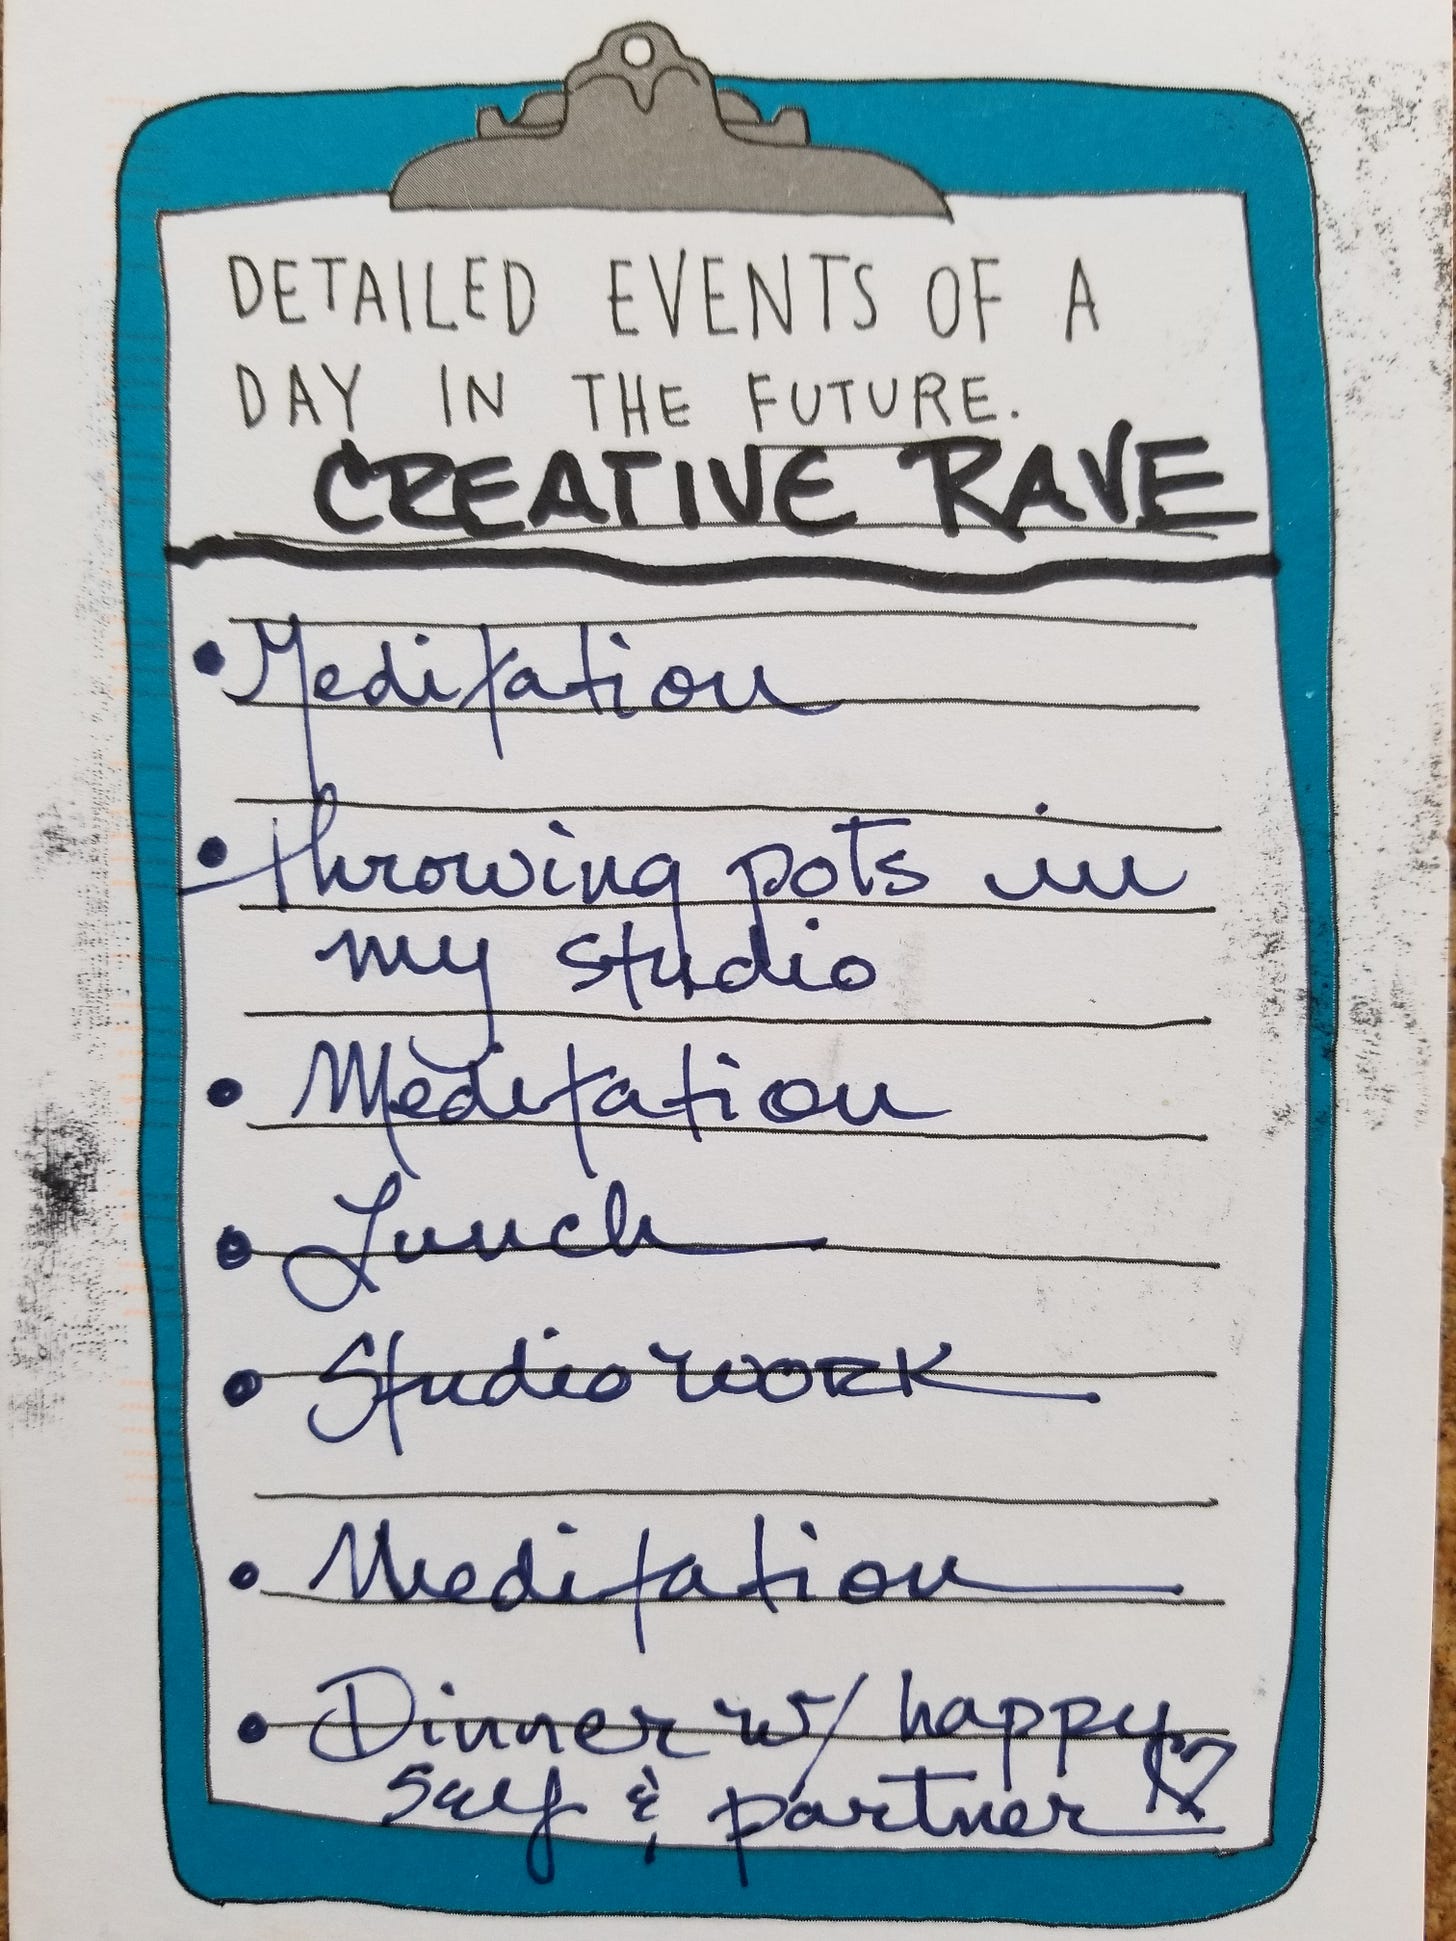 DETAILED EVENTS OF A
DAY IN THE FUTURE.
CREATIVE RAVE
• Meditation
• throwing pots in
my studio
• Meditation
• Lunch
• Studio WORK
• Meditation
• Dinner w/ happy
self & partner ♡